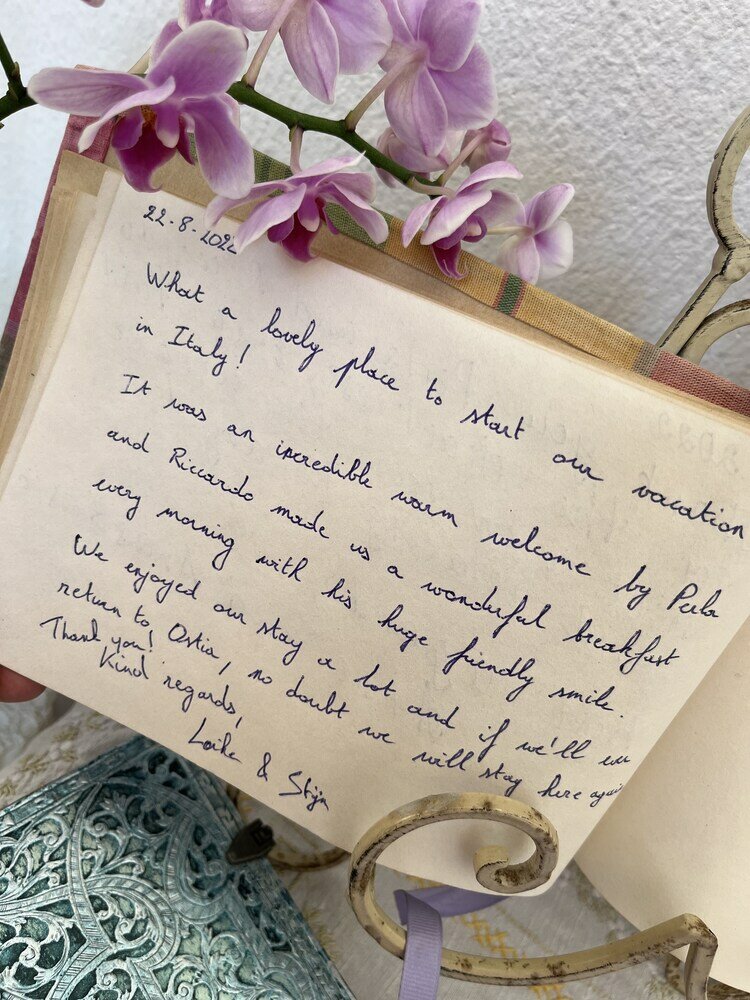 22-8-2022
What a lovely place to start our vacation
in Italy!
It was an incredible warm welcome by Perla
and Riccardo made us a wonderful breakfast
every morning with his huge friendly smile.
We enjoyed our stay a lot and if we'll ever
return to Ostia, no doubt we will stay here again
Thank you!
Kind regards,
& Stijn